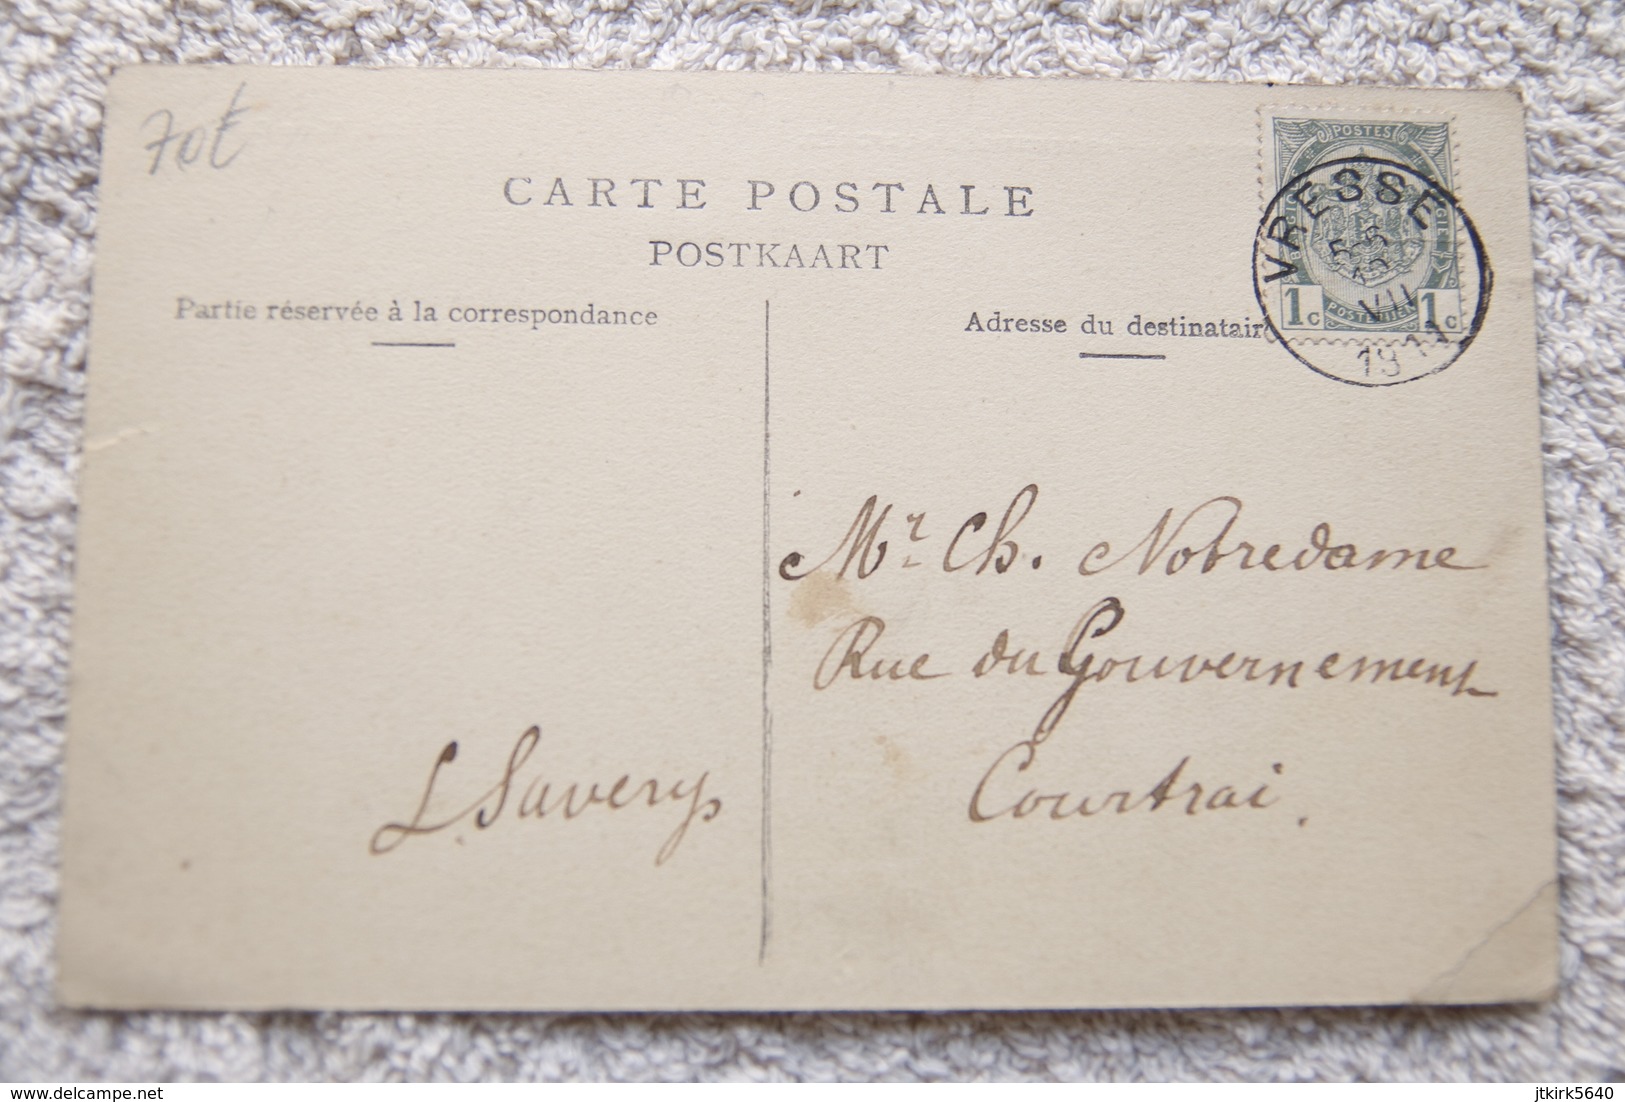 70t
CARTE POSTALE
POSTKAART
Partie réservée à la correspondance
Adresse du destinataire
POSTES
VRESSE
5-5
VII
1c
POSTERIJEN
1c
19
Mr Ch. Nobredame
Rue du Gouvernement
Courtrai.
L. Saverys
www.delcampe.net
jtkirk5640